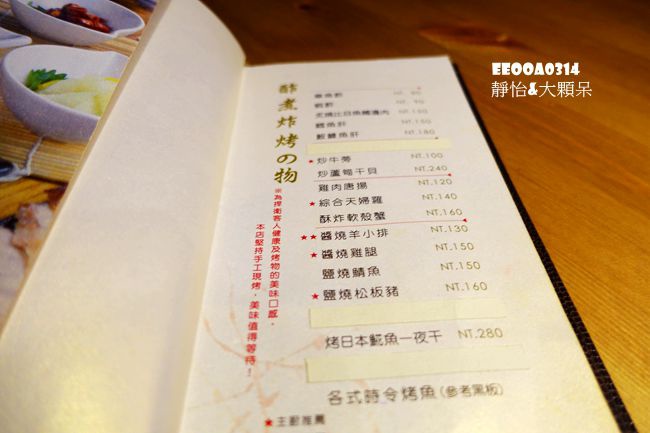 EE00A0314
靜怡&大顆呆
酢煮炸烤の物
章魚酢 NT. 90
蝦酢 NT. 90
炙燒比目魚鰭邊肉 NT.150
鱈魚肝 NT.150
鮟鱇魚肝 NT.180
★炒牛蒡 NT.100
炒蘆筍干貝 NT.240
雞肉唐揚 NT.120
★綜合天婦羅 NT.140
酥炸軟殼蟹 NT.160
★★醬燒羊小排 NT.130
★醬燒雞腿 NT.150
鹽燒鯖魚 NT.150
★鹽燒松板豬 NT.160
烤日本魷魚一夜干 NT.280
各式時令烤魚(參考黑板)
★主廚推薦
※為捍衛客人健康及烤物的美味口感,
本店堅持手工現烤,美味值得等待!